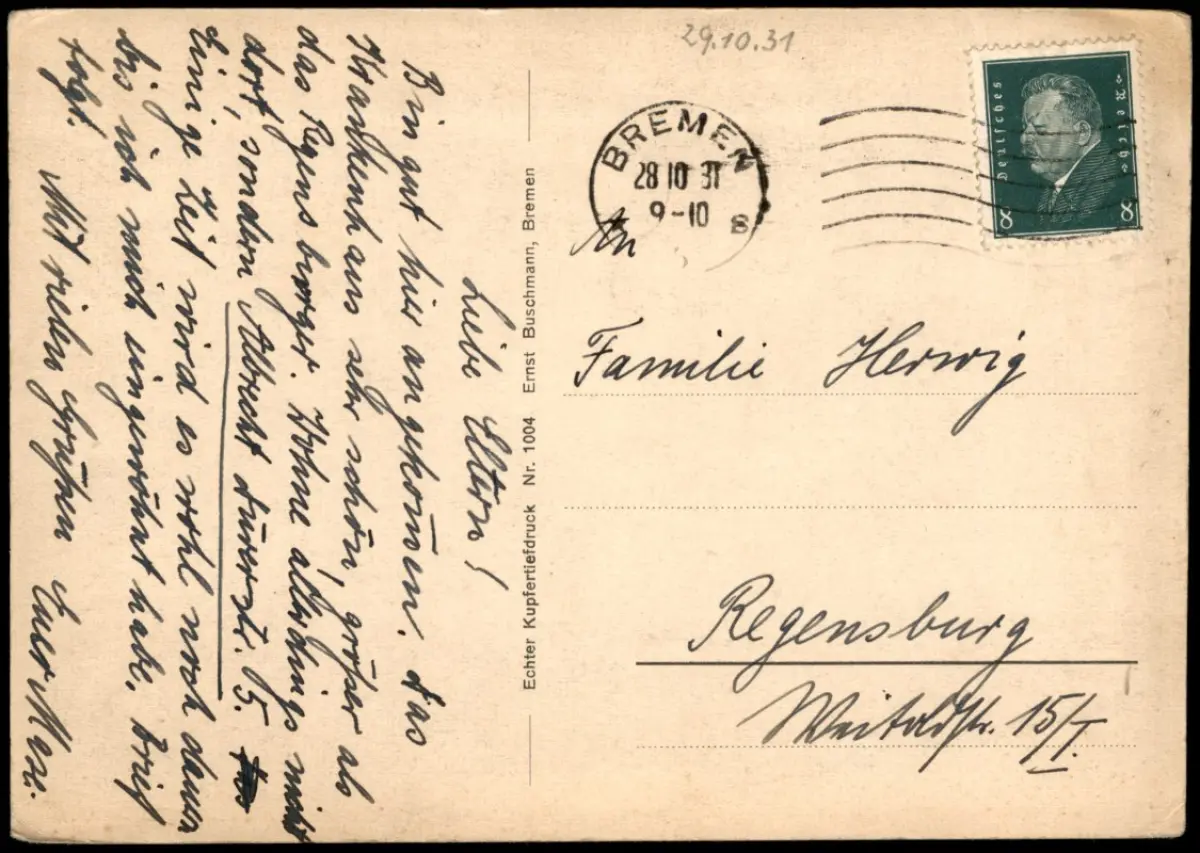 29.10.31
BREMEN
28 10 31
9-10
8
Deutsches Reich
8 8
An
Familie Herwig
Regensburg
Weitoldstr. 15/I.
Echter Kupfertiefdruck Nr. 1004 Ernst Buschmann, Bremen
Liebe Eltern!
Bin gut hier angekommen. Das
Krankenhaus sehr schön, größer als
das Regensburger. Wohne allerdings nicht
dort, sondern Albrecht Dürerstr. 5.
Einige Zeit wird es wohl noch dauern
bis ich mich eingewöhnt habe. Brief
folgt. Mit vielen Grüßen Euer Max.